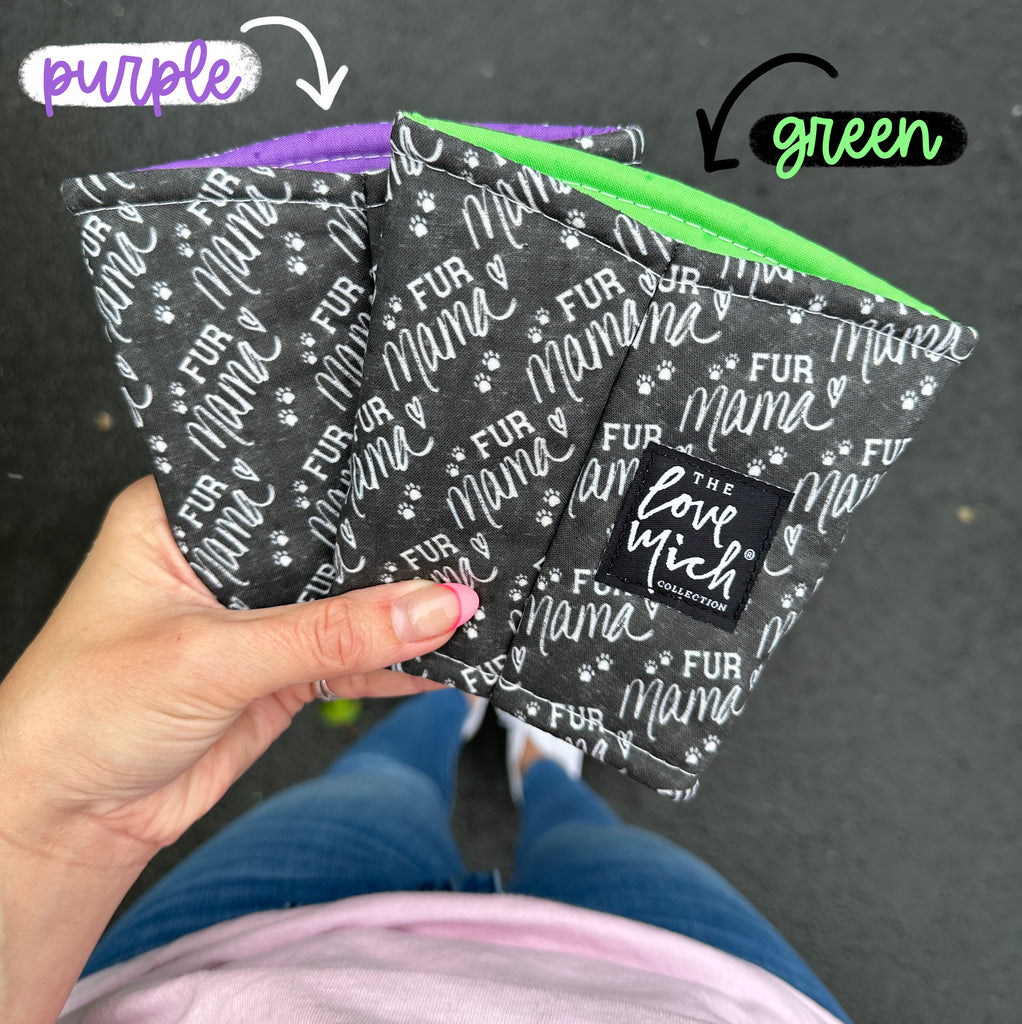 purple
green
FUR
Mama
FUR
Mama
FUR
Mama
FUR
Mama
FUR
Mama
FUR
Mama
FUR
Mama
FUR
Mama
FUR
Mama
FUR
Mama
THE
love
Mich®
COLLECTION
FUR
Mama
FUR
Mama